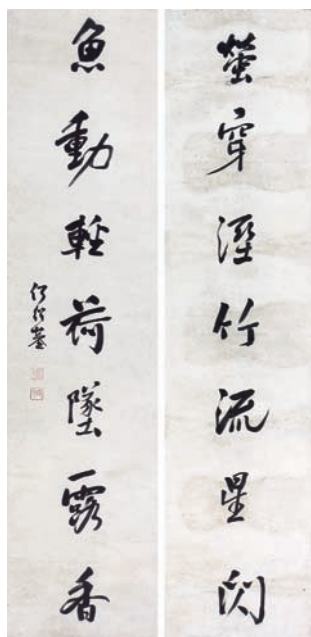 螢穿溼竹流星閃
魚動輕荷墜露香
何紹基